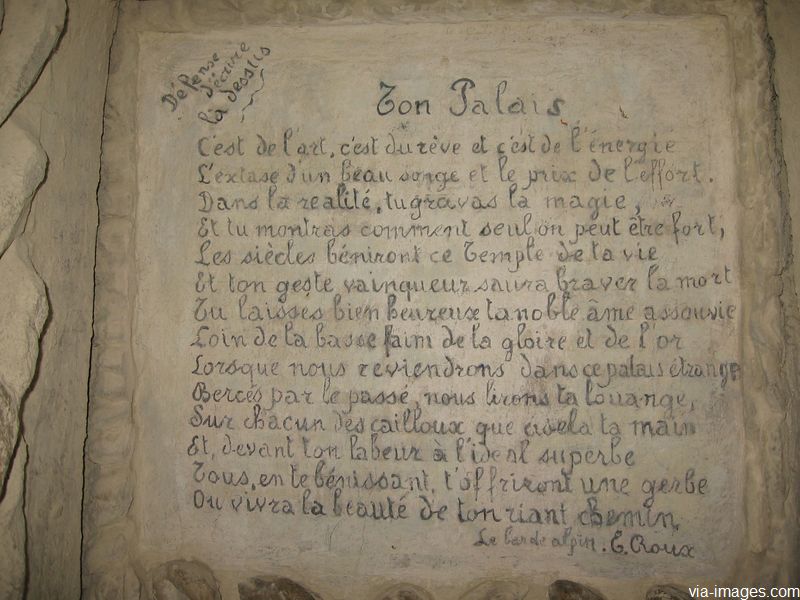 Défense
d'écrire
là dessus
Ton Palais
C'est de l'art, c'est du rêve et c'est de l'énergie
L'extase d'un beau songe et le prix de l'effort.
Dans la realité, tu gravas la magie,
Et tu montras comment seul on peut être fort,
Les siècles béniront ce Temple de ta vie
Et ton geste vainqueur saura braver la mort
Tu laisses bien heureux ta noble âme assouvie
Loin de la basse faim de la gloire et de l'or
Lorsque nous reviendrons dans ce palais étrange
Bercés par le passé, nous lirons ta louange,
Sur chacun des cailloux que cisela ta main
Et, devant ton labeur à l'idéal superbe
Tous, en te bénissant, t'offriront une gerbe
Ou vivra la beauté de ton riant chemin.
Le barde alpin. E. Roux
via-images.com